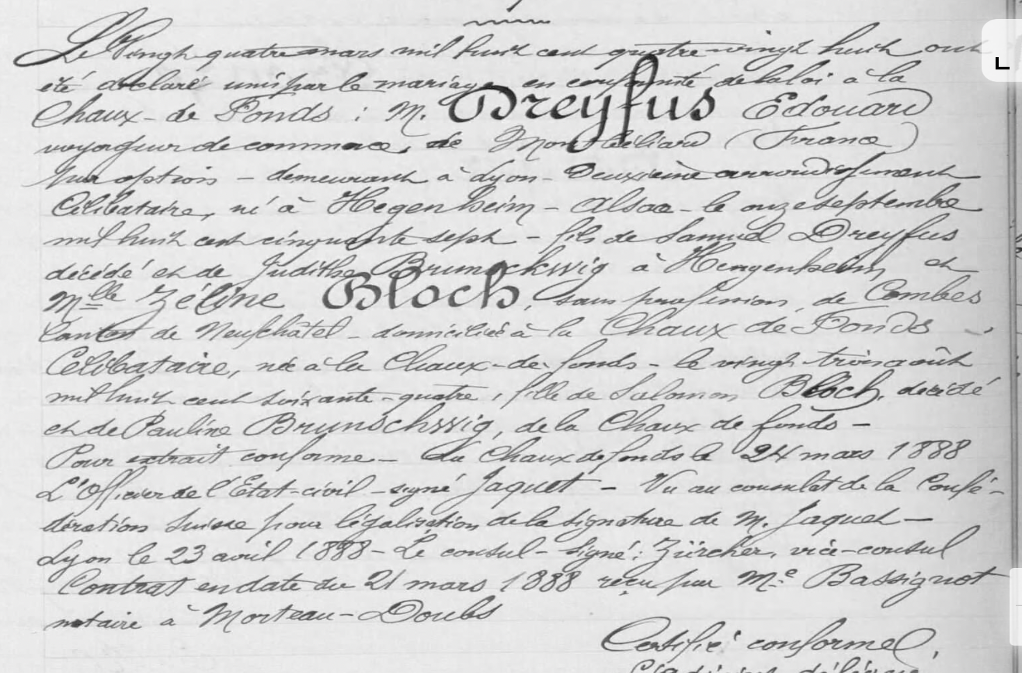 Le Vingt quatre mars mil huit cent quatre-vingt huit ont
été déclaré unis par le mariage en conformité de la loi à la
Chaux-de Fonds : M. Dreyfus Edouard
voyageur de commerce, de Montbéliard (France)
par option - demeurant à Lyon - Deuxième arrondissement
Célibataire, né à Hegenheim - Alsace - le onze septembre
mil huit cent cinquante sept - fils de Samuel Dreyfus
décédé et de Judithe Brunschwig à Hengenheim, et
Mlle Zéline Bloch, sans profession, de Combes
Canton de Neufchâtel - domiciliée à la Chaux de Fonds -
Célibataire, née à la Chaux-de-fonds - le vingt-trois août
mil huit cent soixante-quatre, fille de Salomon Bloch, décédé
et de Pauline Brunschwig, de la Chaux de fonds -
Pour extrait conforme - La Chaux de fonds le 24 mars 1888
L'Officier de l'Etat-civil - signé Jaquet - Vu au consulat de la Confé-
dération Suisse pour légalisation de la signature de M. Jaquet -
Lyon le 23 avril 1888 - Le consul - signé : Zürcher, vice-consul
Contrat en date du 21 mars 1888 reçu par Me Bassignot
notaire à Morteau - Doubs
Certifié conforme,